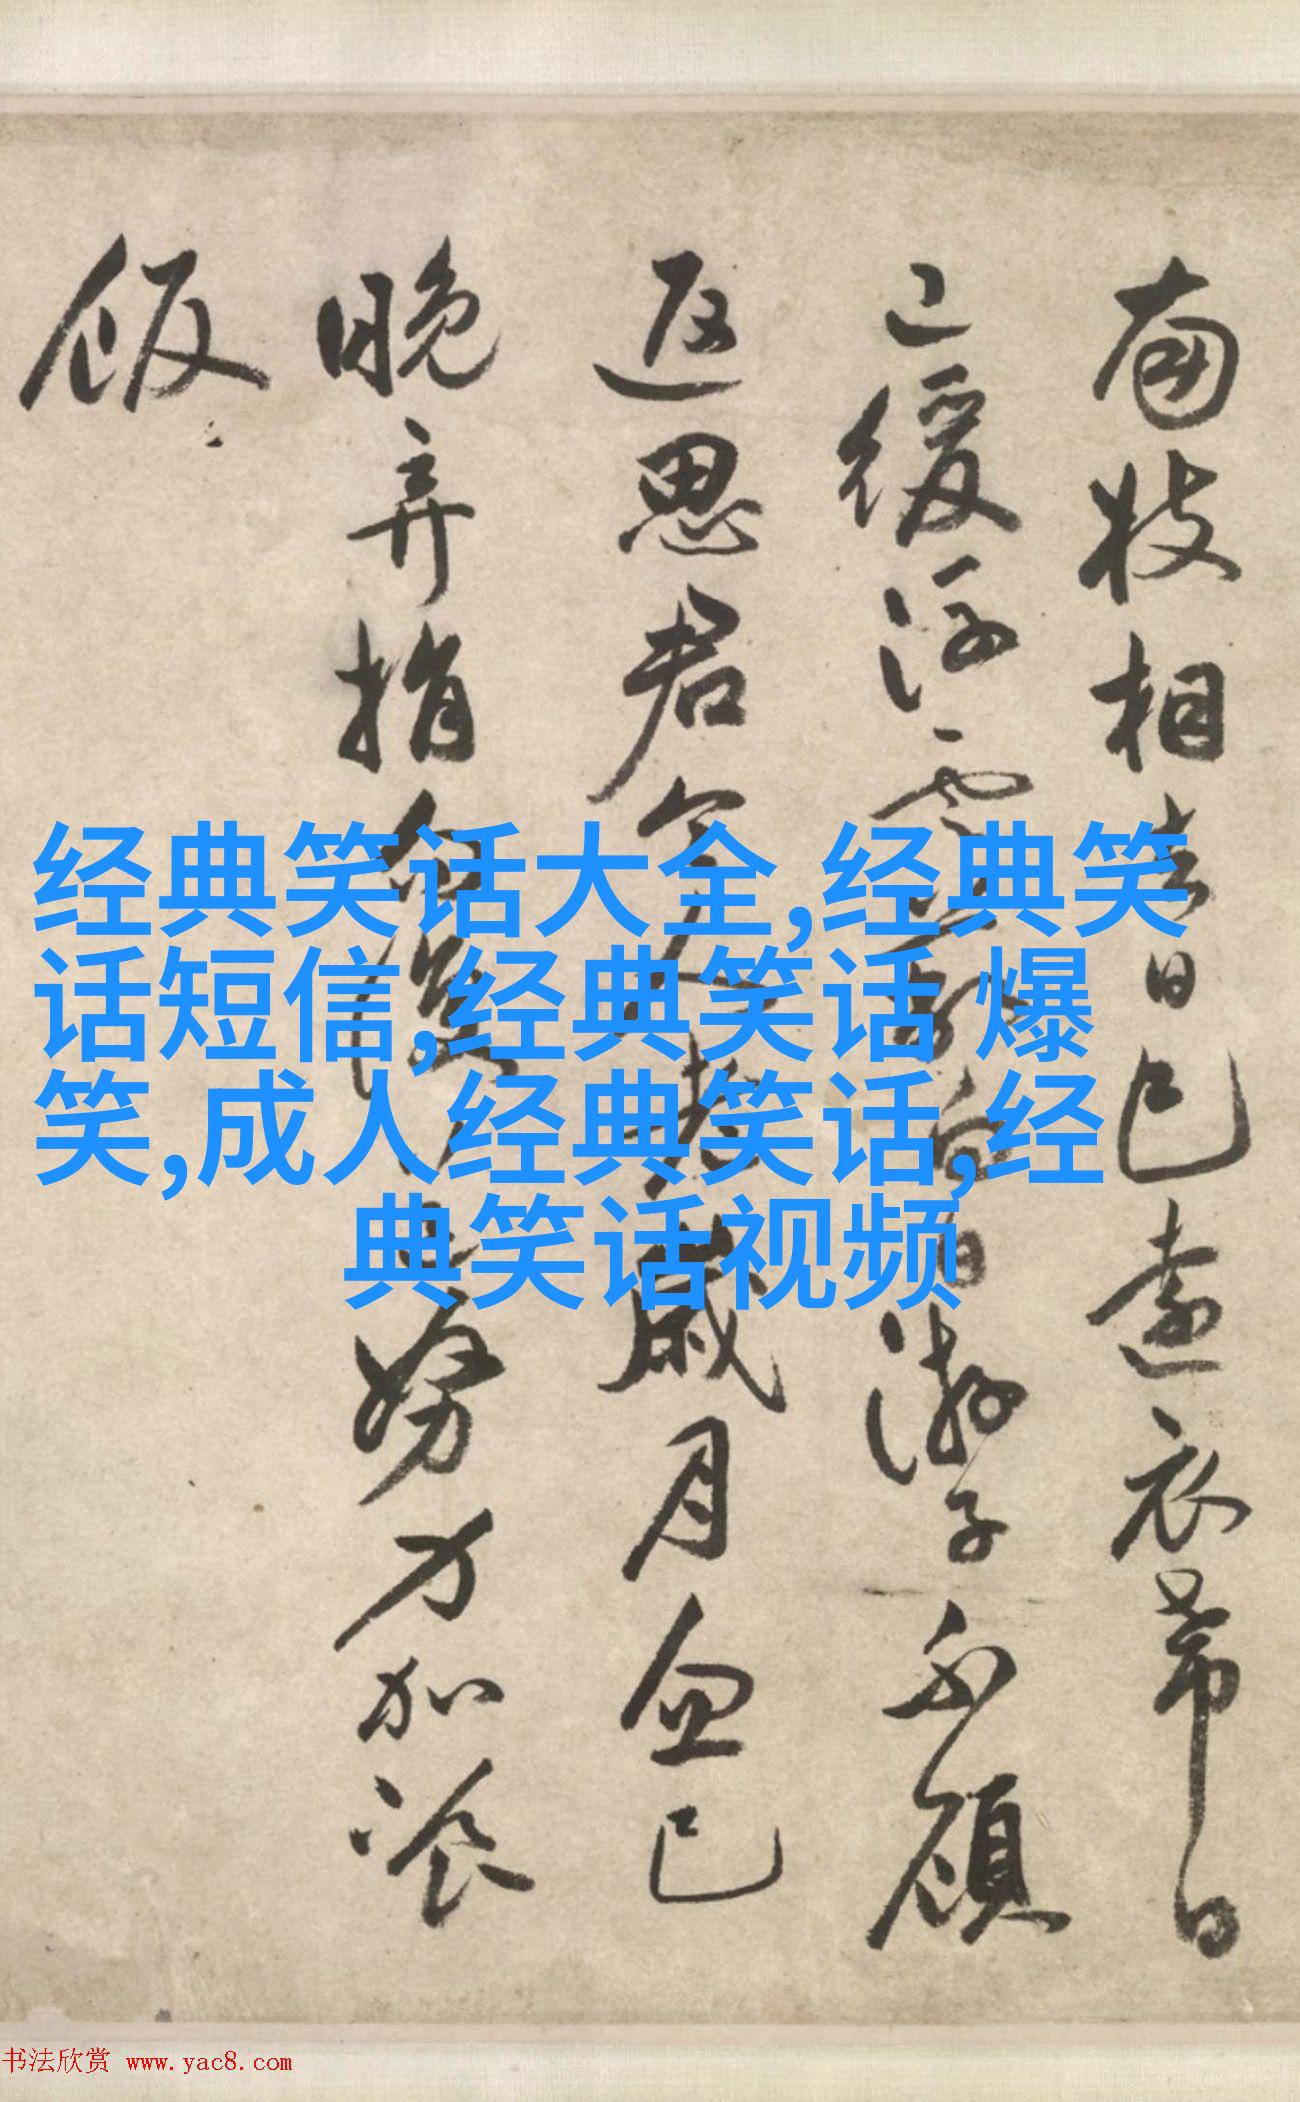 南枝相去日已遠衣帶日
已緩浮雲蔽白日游子不顧
返思君令人老歲月忽已
晚弃捐勿復道努力加飡
飯
经典笑话大全,经典笑
话短信,经典笑话 爆
笑,成人经典笑话,经
典笑话视频
书法欣赏 www.yac8.com